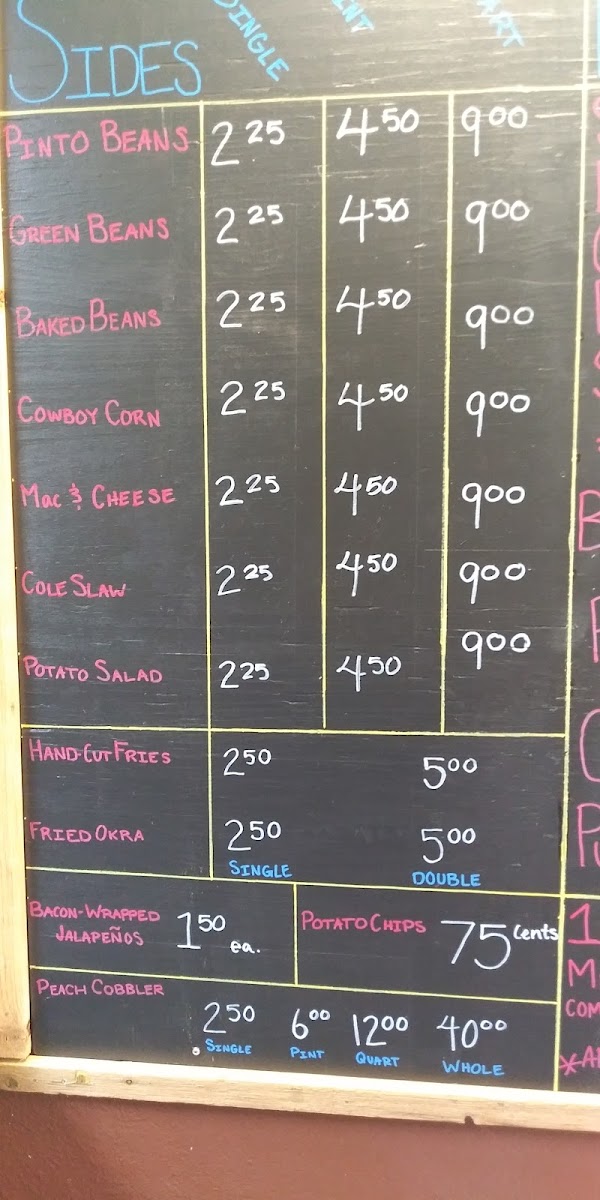 SIDES SINGLE
PINTO BEANS 2 25 4 50 9 00
GREEN BEANS 2 25 4 50 9 00
BAKED BEANS 2 25 4 50 9 00
COWBOY CORN 2 25 4 50 9 00
MAC & CHEESE 2 25 4 50 9 00
COLE SLAW 2 25 4 50 9 00
POTATO SALAD 2 25 4 50 9 00
HAND-CUT FRIES 2 50 5 00
FRIED OKRA 2 50 5 00
SINGLE DOUBLE
BACON-WRAPPED
JALAPEÑOS 1 50 ea.
POTATO CHIPS 75 Cents
PEACH COBBLER
2 50 6 00 12 00 40 00
SINGLE PINT QUART WHOLE